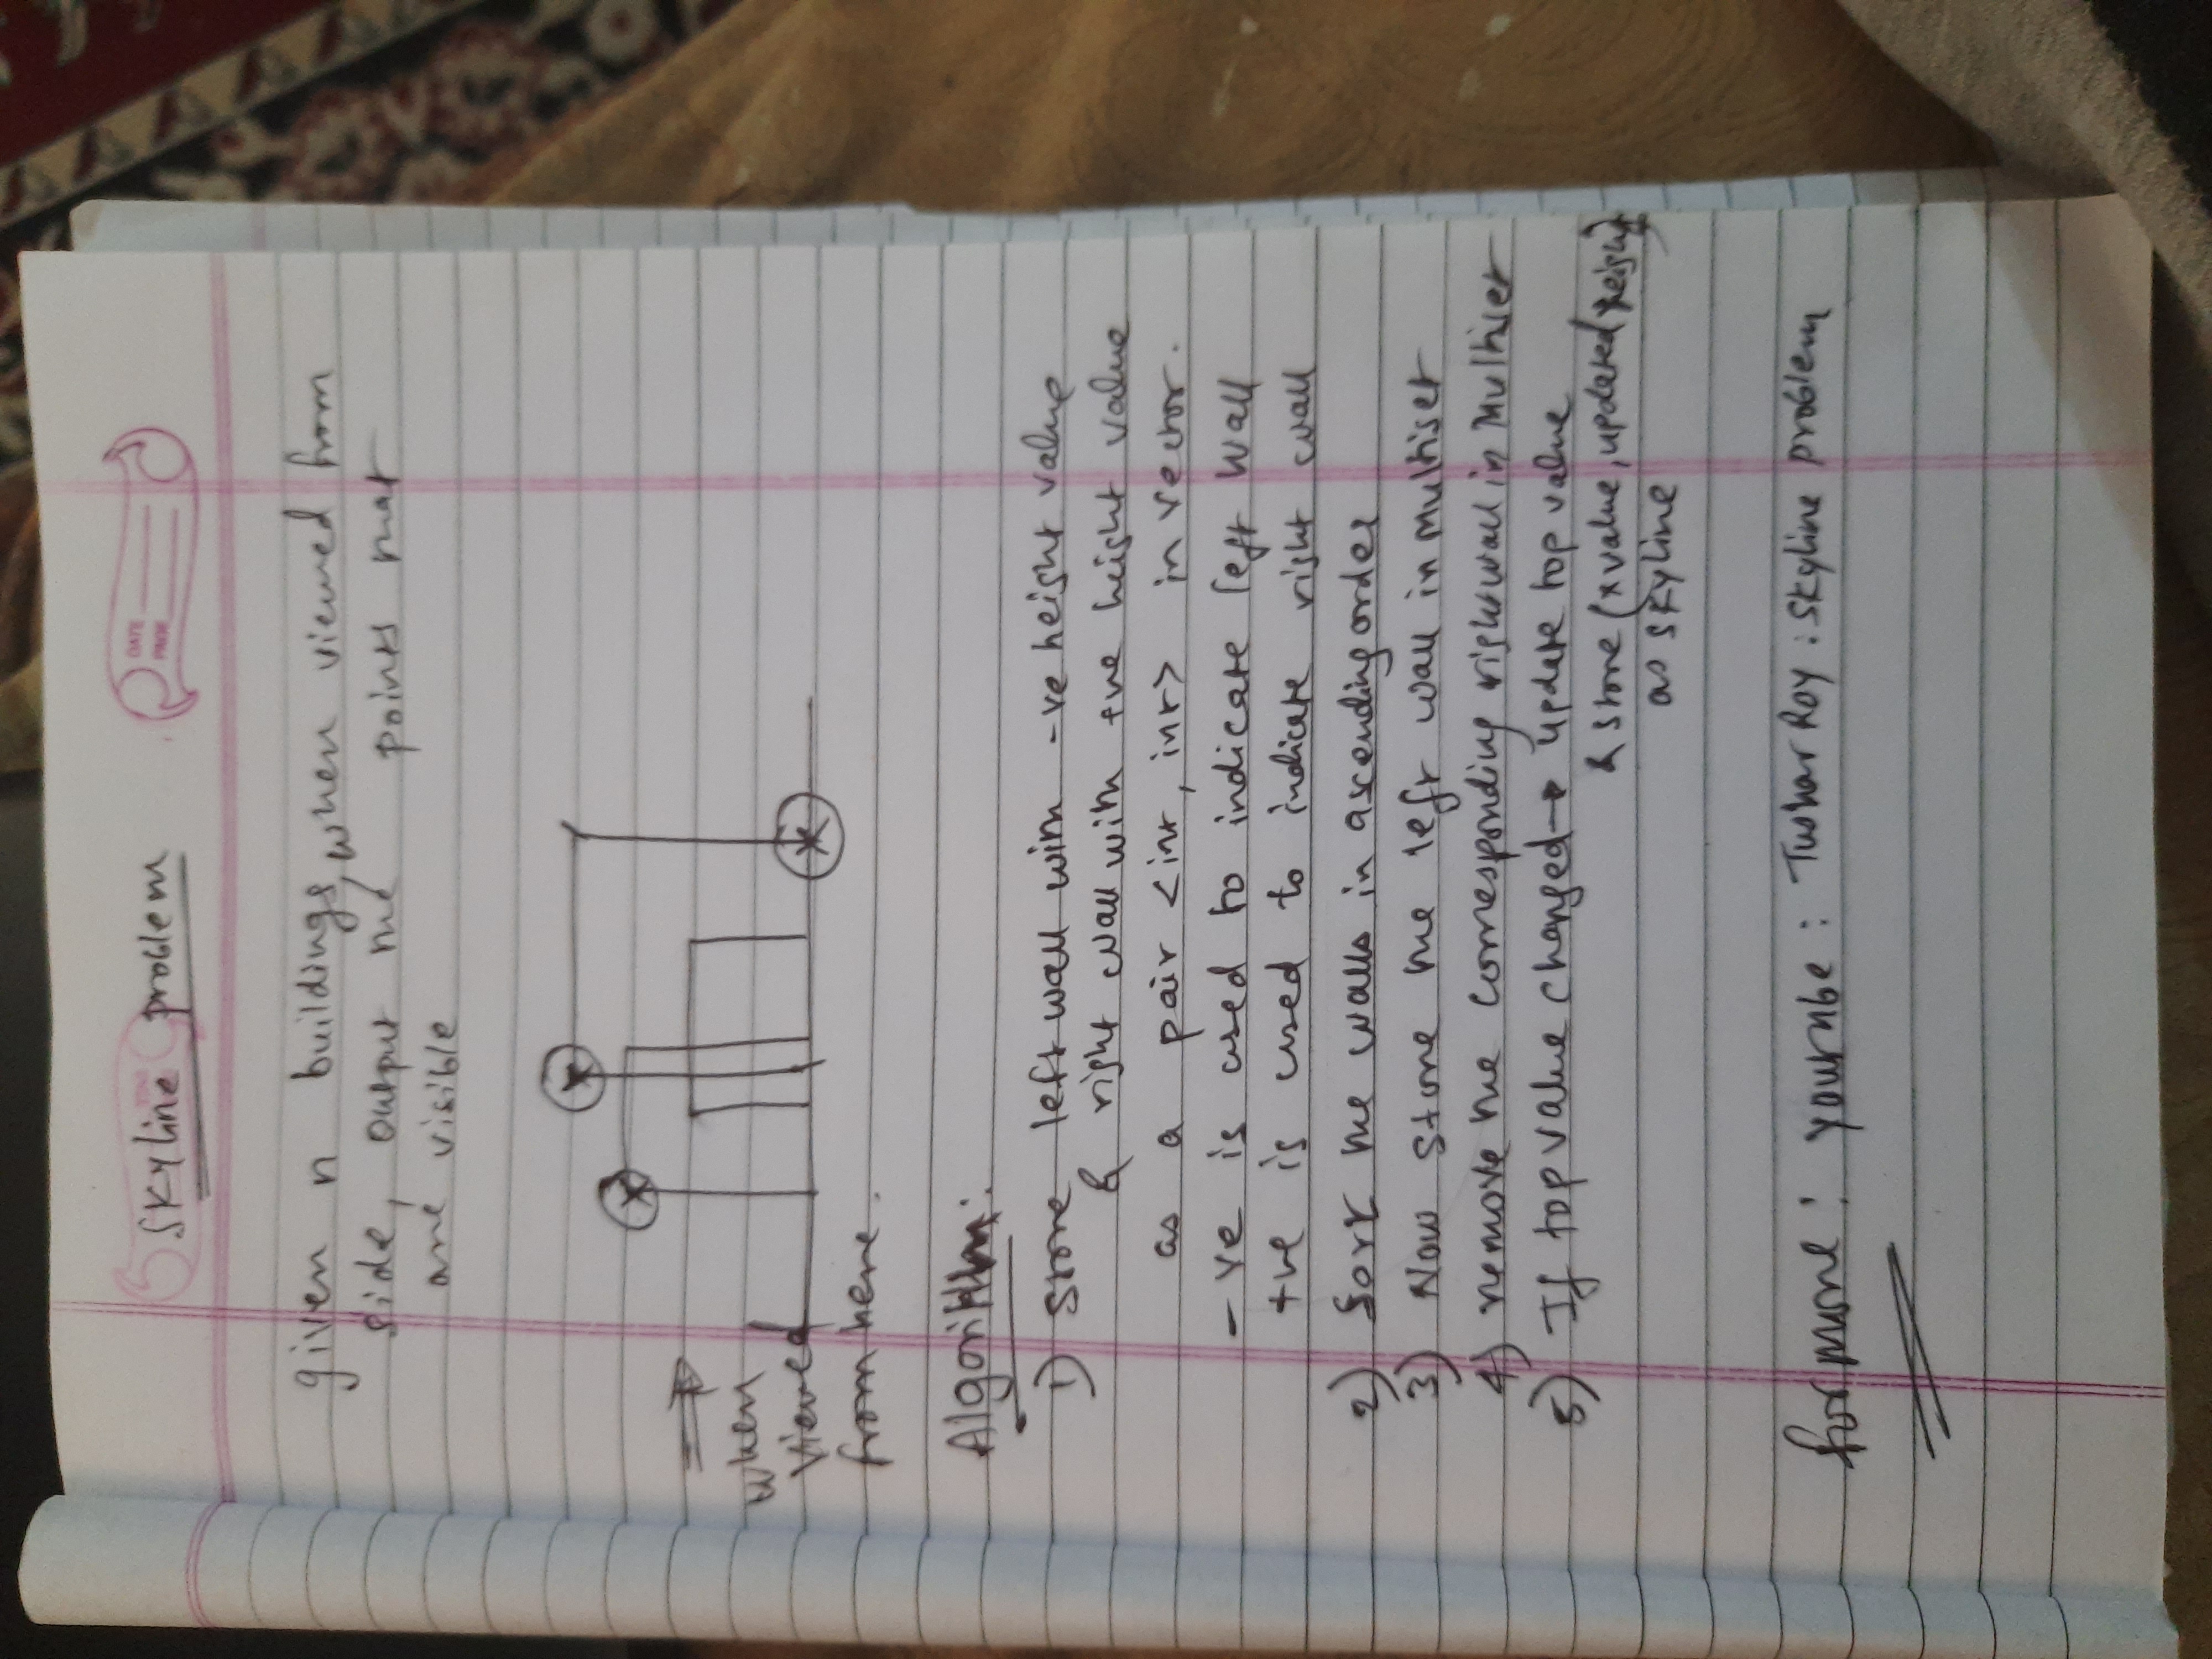 Skyline problem
DATE
PAGE
given n buildings, when viewed from
side, output the points that
are visible
when
viewed
from here.
Algorithm:
1) Store left wall with -ve height value
& right wall with +ve height value
as a pair <int, int> in vector.
-ve is used to indicate left wall
+ve is used to indicate right wall
2) Sort the walls in ascending order
3) Now store the left wall in multiset
4) remove the corresponding right wall in Multiset
5) If top value changed → update top value
& store (x value, updated height)
as skyline
for more: youtube: Tushar Roy: skyline problem